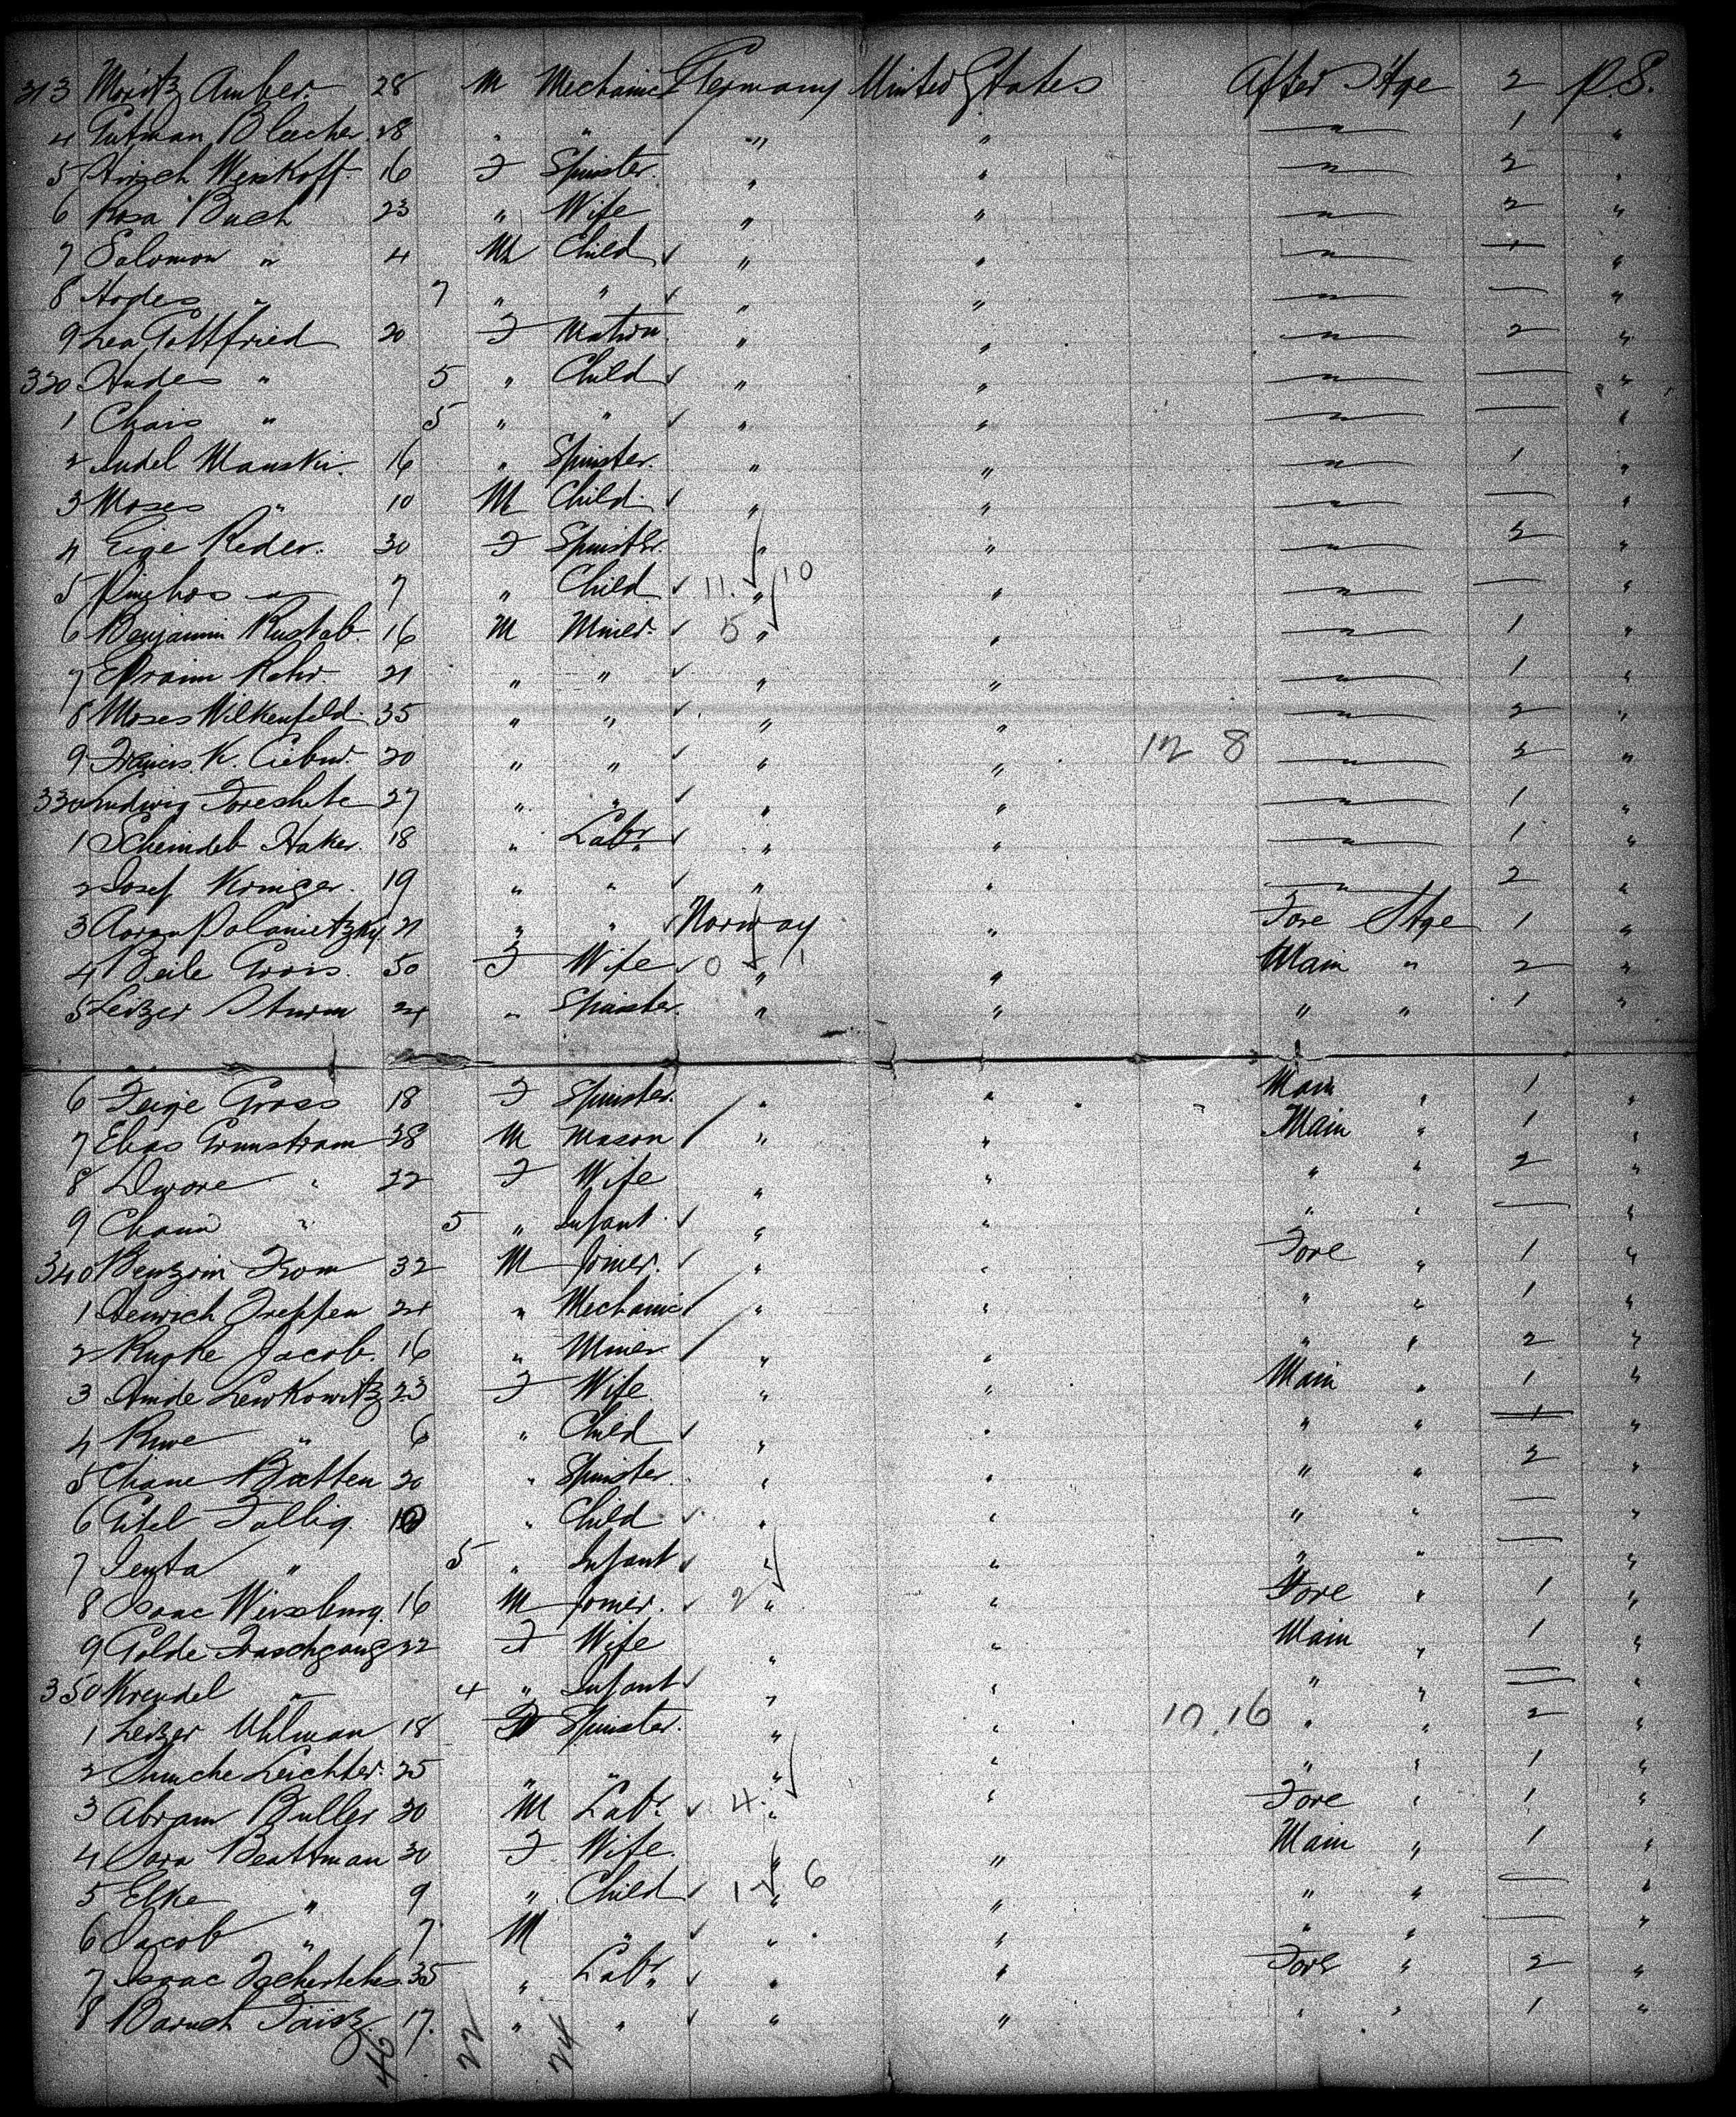 313 Moritz Amber 28 M Mechanic Germany United States After Stge 2 P.S.
4 Gutman Blecher 28 " " " " " 1 "
5 Hirsch Weiskoff 16 F Spinster " " " 2 "
6 Rosa Buch 23 " Wife " " " 2 "
7 Salomon " 4 M Child ✓ " " " 1 "
8 Hodes " 7 " " ✓ " " " — "
9 Lea Gottfried 20 F Matron " " " 2 "
320 Hudes " 5 " Child ✓ " " " — "
1 Chais " 5 " " ✓ " " " — "
2 Judel Manski 16 " Spinster " " " 1 "
3 Moses " 10 M Child ✓ " " " — "
4 Eige Reder 30 F Spinster " " " 2 "
5 Pinchos " 7 " Child ✓ 11 " 10 " " — "
6 Benjamin Rustab 16 M Miner ✓ 5 " " " 1 "
7 Efraim Rohr 21 " " ✓ " " " 1 "
8 Moses Wilkenfeld 35 " " ✓ " " " 2 "
9 Francis K. 20 " " ✓ " " 12 8 " 2 "
330 Ludwig 27 " " ✓ " " " 1 "
1 Scheindeb Haker 18 " Labr ✓ " " " 1 "
2 Josef Kringer 19 " " ✓ " " " 2 "
3 Aaron Polanietzky 21 " " ✓ Norway " Fore Stge 1 "
4 Beile Grois 50 F Wife ✓ 0 " 1 " Main " 2 "
5 Leizer Sturm 24 " Spinster " " " " 1 "
6 Feige Gross 18 F Spinster " " Main " 1 "
7 Elias Grunstram 28 M Mason / " " Main " 1 "
8 Dwore " 22 F Wife " " " " 2 "
9 Chaim " 5 " Infant ✓ " " " " — "
340 Benzoin From 32 M Joiner ✓ " " Fore " 1 "
1 Henrich Treppen 24 " Mechanic / " " " " 1 "
2 Rupke Jacob 16 " Miner / " " " " 2 "
3 Hinde Lewkowitz 23 F Wife " " Main " 1 "
4 Riwe " 6 " Child ✓ " " " " 1 "
5 Chane Batten 20 " Spinster " " " " 2 "
6 Gitel Fallig 10 " Child ✓ " " " " — "
7 Jenta " 5 " Infant ✓ " " " " — "
8 Isaac Weissburg 16 M Joiner ✓ 2 " " Fore " 1 "
9 Golde Fraschgang 32 F Wife " " Main " 1 "
350 Kreudel " 4 " Infant ✓ " " " " — "
1 Leizer Uhlman 18 F Spinster " " 10,16 " " 2 "
2 Leichter 25 " " " " " " 1 "
3 Abram Buller 30 M Labr ✓ 4 " " Fore " 1 "
4 Sara Beattman 30 F Wife " " Main " 1 "
5 Elke " 9 " Child ✓ 1 " 6 " " " — "
6 Jacob " 7 M " ✓ " " " " — "
7 Isaac 35 " Labr ✓ " " Fore " 2 "
8 Baruch Faisz 17 " " ✓ " " " " 1 "
46 22 24